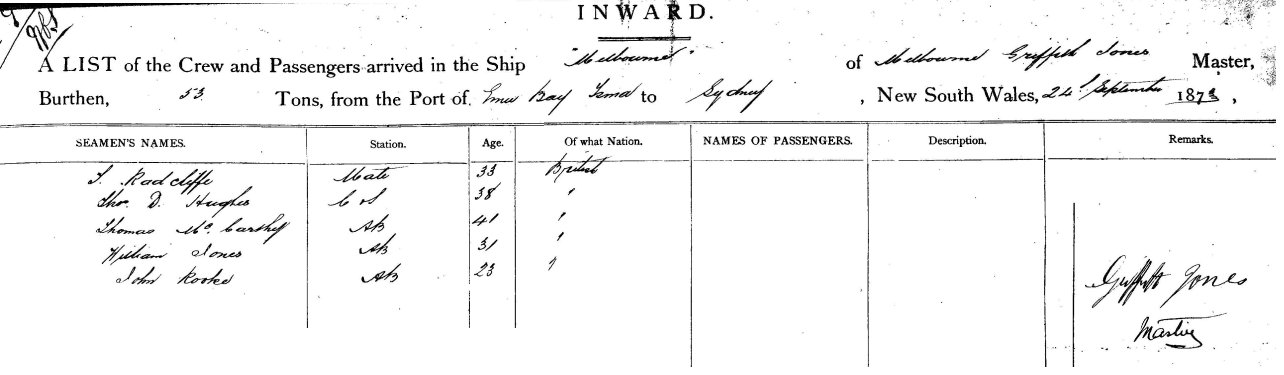 INWARD.
A LIST of the Crew and Passengers arrived in the Ship "Melbourne" of Melbourne Griffith Jones Master,
Burthen, 53 Tons, from the Port of Emu Bay to Sydney, New South Wales, 24 September 1873,
SEAMEN'S NAMES. Station. Age. Of what Nation. NAMES OF PASSENGERS. Description. Remarks.
S. Radcliffe Mate 33 British
Thos. D. Hughes C S 38 "
Thomas Mc. Carthy AB 41 "
William Jones AB 31 "
John Rooke AB 23 "
Griffith Jones
Master